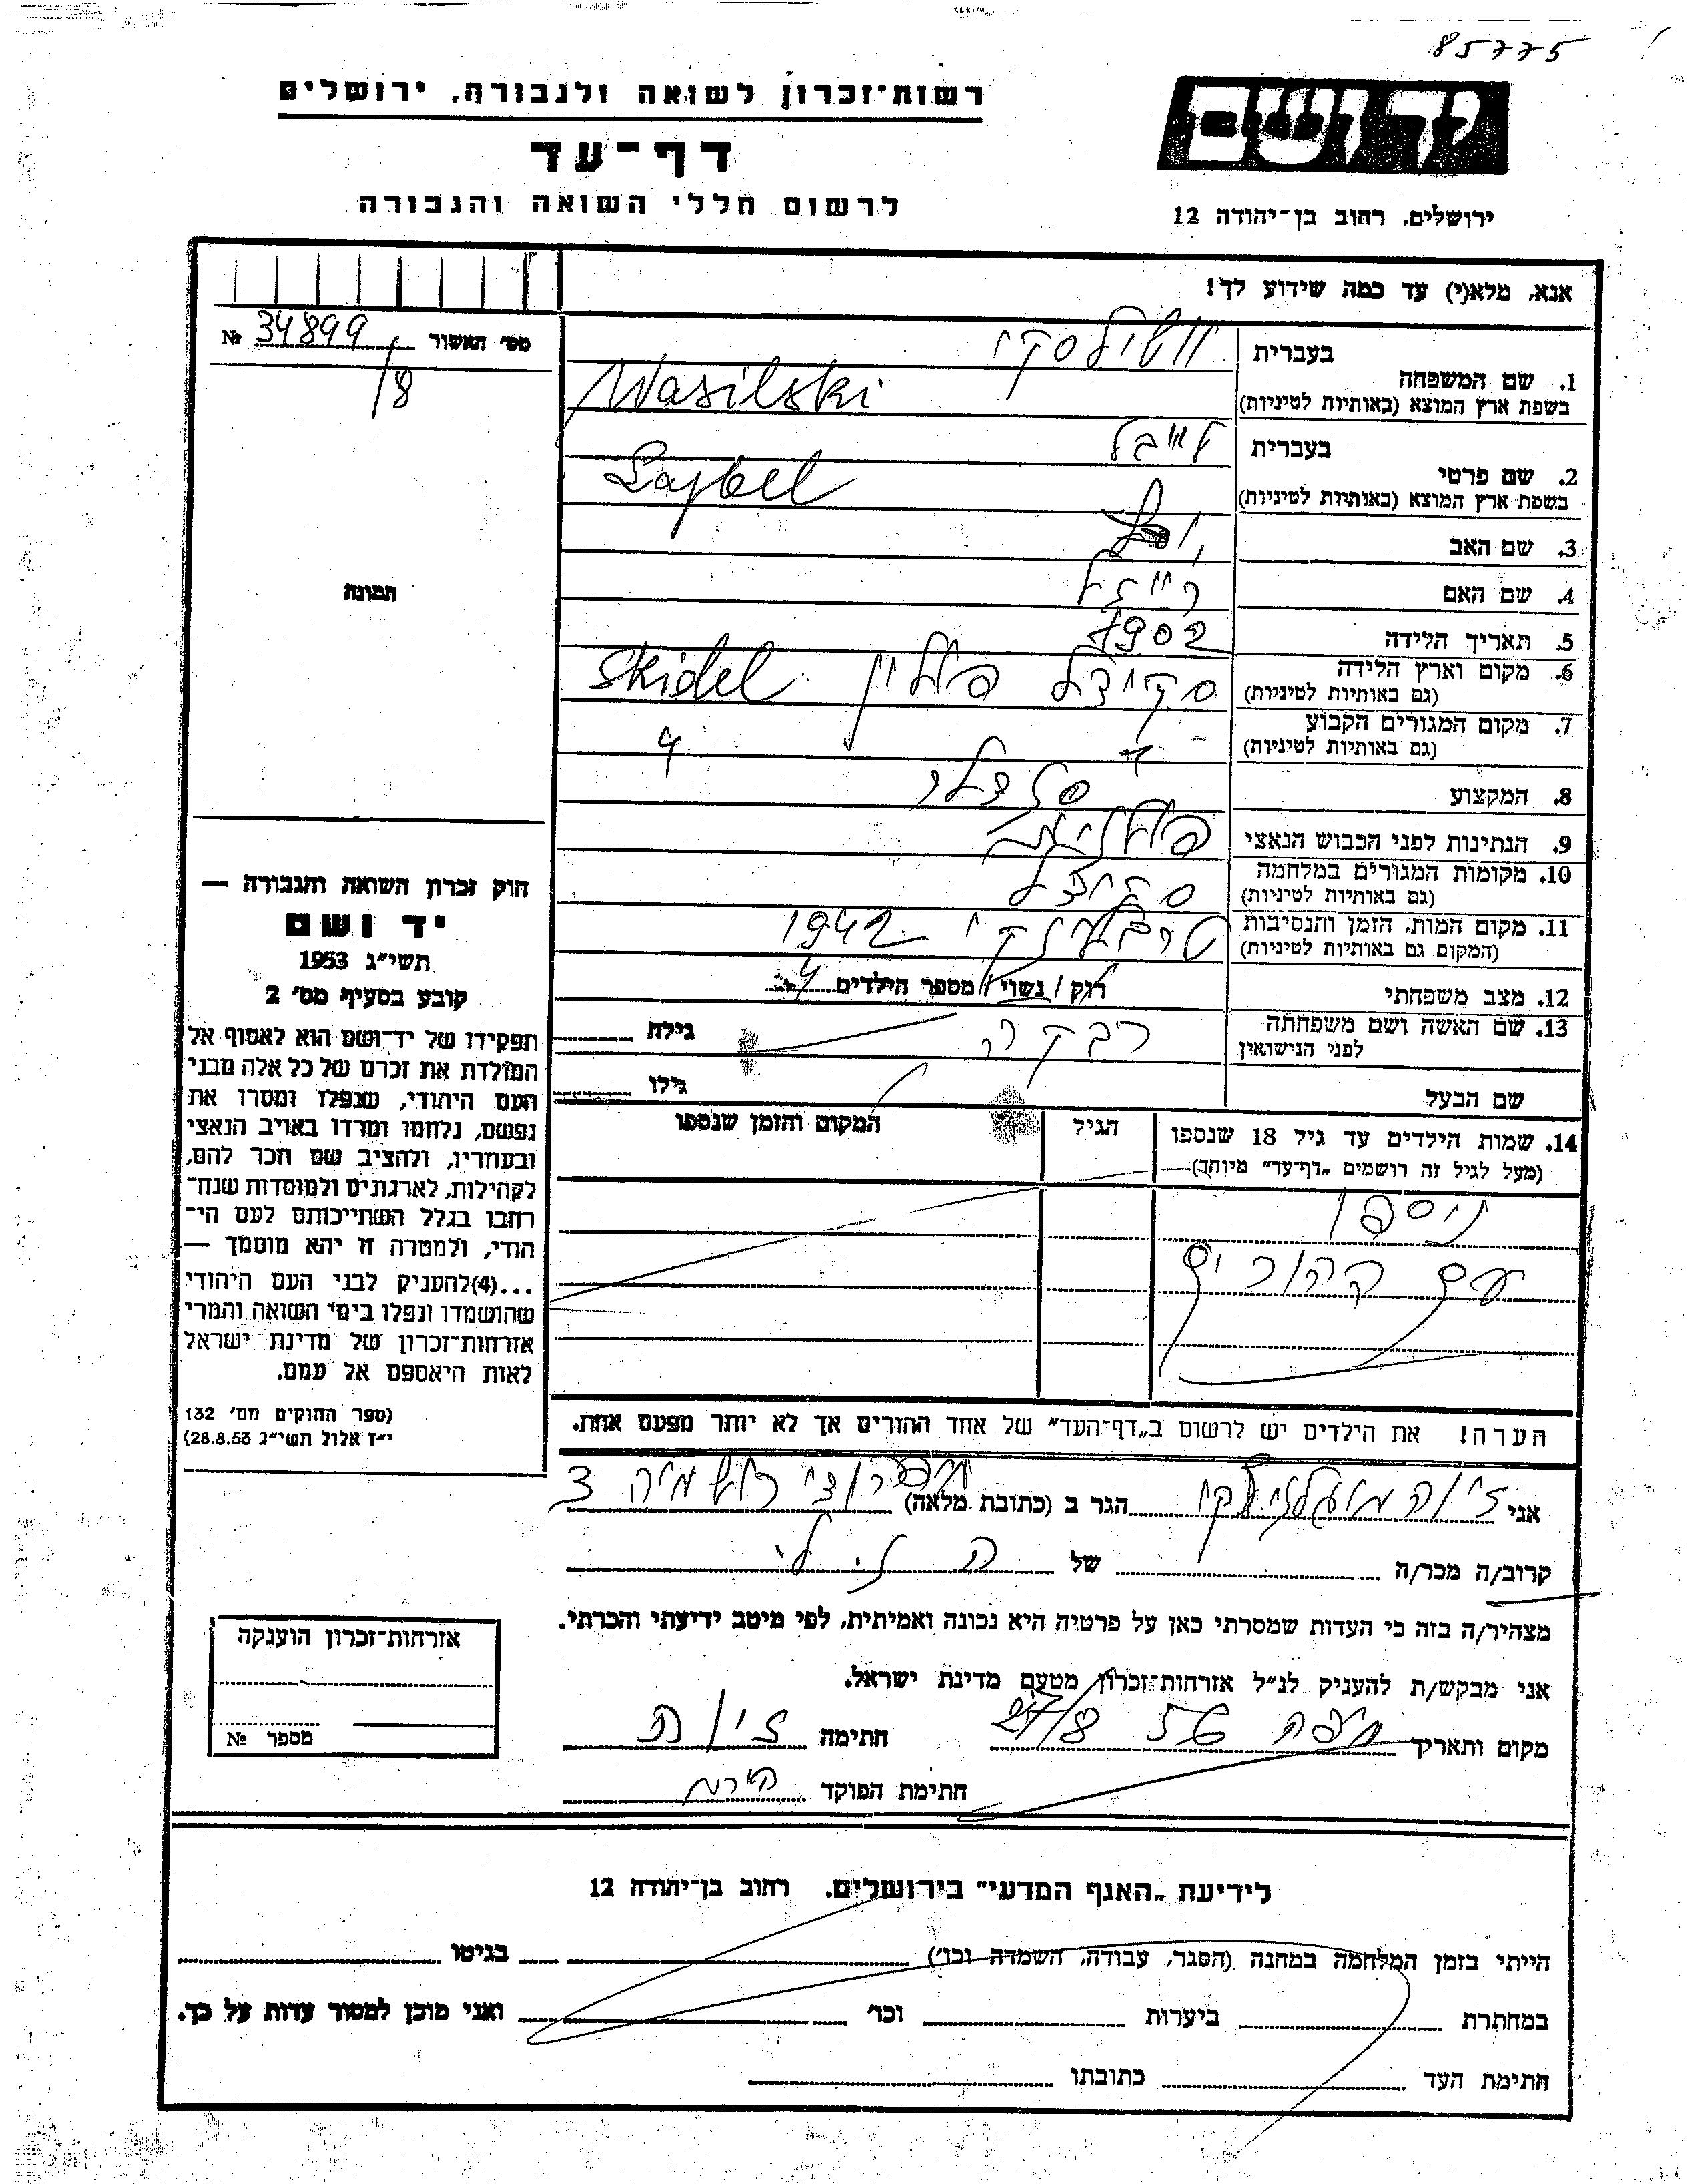 85775
רשות־זכרון לשואה ולגבורה, ירושלים
דף־עד
לרשום חללי השואה והגבורה
יד ושם
ירושלים, רחוב בן־יהודה 12
אנא, מלא(י) עד כמה שידוע לך!
מס׳ האשור № 34899
/8
תמונה
1. שם המשפחה בעברית ווסילסקי
בשפת ארץ המוצא (באותיות לטיניות) Wasilski
2. שם פרטי בעברית לייבל
בשפת ארץ המוצא (באותיות לטיניות) Lajbel
3. שם האב
4. שם האם רייזל
5. תאריך הלידה 1902
6. מקום וארץ הלידה סקידל פולין Skidel
(גם באותיות לטיניות)
7. מקום המגורים הקבוע
(גם באותיות לטיניות)
8. המקצוע סנדלר
9. הנתינות לפני הכבוש הנאצי פולנית
10. מקומות המגורים במלחמה סקידל
(גם באותיות לטיניות)
11. מקום המות, הזמן והנסיבות טרבלינקי 1942
(המקום גם באותיות לטיניות)
12. מצב משפחתי רוק / נשוי / מספר הילדים 4
13. שם האשה ושם משפחתה רבקה גילה
לפני הנישואין
שם הבעל גילו
14. שמות הילדים עד גיל 18 שנספו הגיל המקום והזמן שנספו
(מעל לגיל זה רושמים „דף־עד״ מיוחד)
ניספו
עם ההורים
הערה! את הילדים יש לרשום ב„דף־העד״ של אחד ההורים אך לא יותר מפעם אחת.
חוק זכרון השואה והגבורה —
יד ושם
תשי״ג 1953
קובע בסעיף מס׳ 2
תפקידו של יד־ושם הוא לאסוף אל
המולדת את זכרם של כל אלה מבני
העם היהודי, שנפלו ומסרו את
נפשם, נלחמו ומרדו באויב הנאצי
ובעוזריו, ולהציב שם וזכר להם,
לקהילות, לארגונים ולמוסדות שנח־
רבו בגלל השתייכותם לעם הי־
הודי, ולמטרה זו יהא מוסמך —
...(4)להעניק לבני העם היהודי
שהושמדו ונפלו בימי השואה והמרי
אזרחות־זכרון של מדינת ישראל
לאות היאספם אל עמם.
(ספר החוקים מס׳ 132
י״ז אלול תשי״ג 28.8.53)
אני זיוה הגר ב (כתובת מלאה) 3
קרוב/ה מכר/ה של ה נ. ל.
מצהיר/ה בזה כי העדות שמסרתי כאן על פרטיה היא נכונה ואמיתית, לפי מיטב ידיעתי והכרתי.
אני מבקש/ת להעניק לנ״ל אזרחות־זכרון מטעם מדינת ישראל.
מקום ותאריך חיפה 56 27/8 חתימה זיוה
חתימת הפוקד
אזרחות־זכרון הוענקה
מספר №
לידיעת „האגף המדעי״ בירושלים, רחוב בן־יהודה 12
הייתי בזמן המלחמה במחנה (הסגר, עבודה, השמדה וכו׳) בגיטו
במחתרת ביערות וכו׳ ואני מוכן למסור עדות על כך.
חתימת העד כתובתו